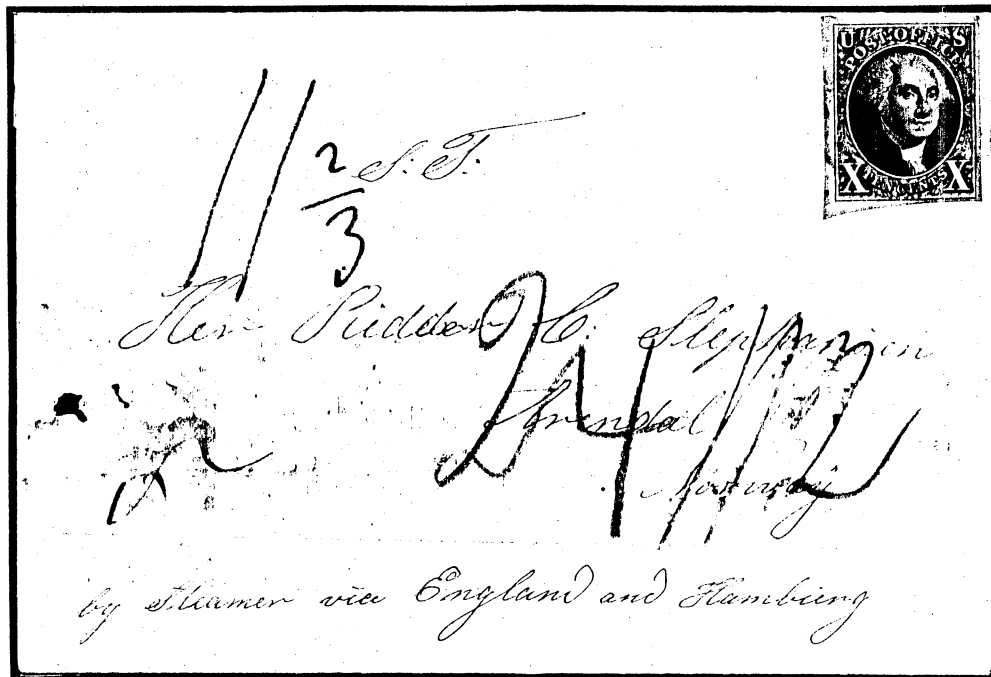 U S
POST OFFICE
X TEN CENTS X
11 2/3
S. T.
Herr Ridder C: Stephansen
24
112
Arendal
Norway
by Steamer via England and Hambürg